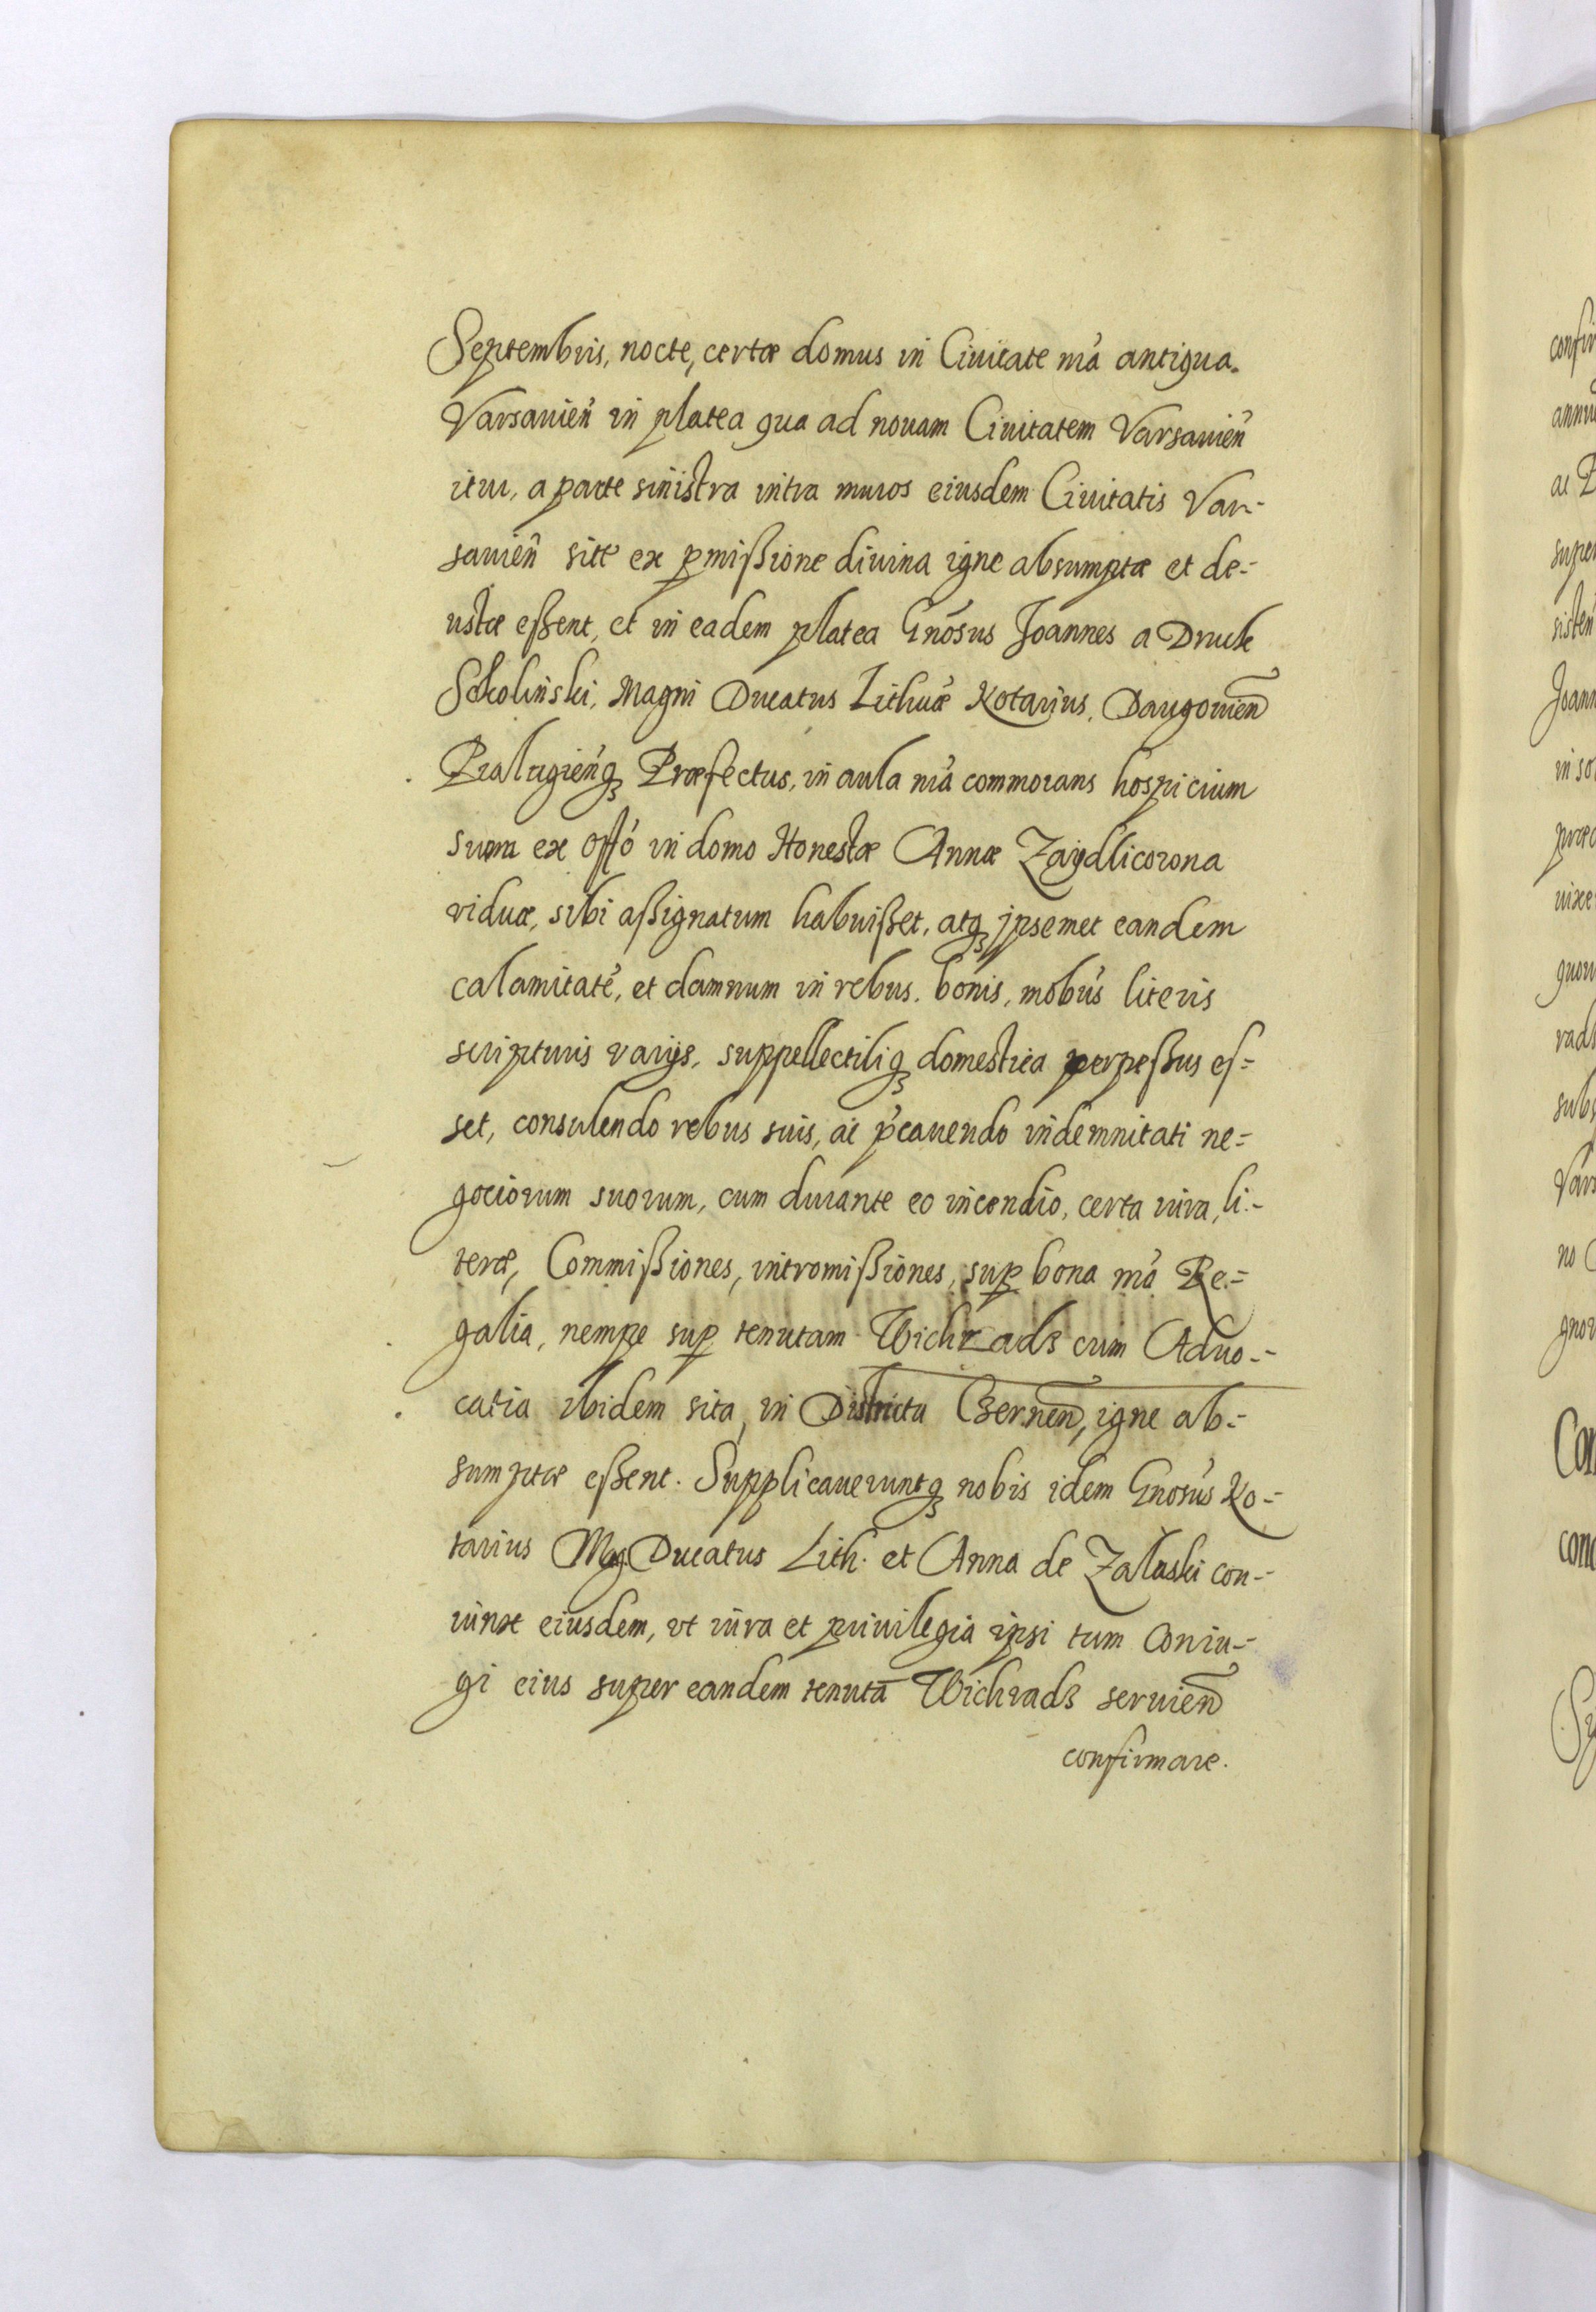 Septembris, nocte, certæ domus in Ciuitate nrã antiqua.
Varsauień in platea qua ad nouam Ciuitatem Varsauień
itur, a parte sinistra intra muros eiusdem Ciuitatis Var-
sauień sitę ex pmißione diuina igne absumptæ et de-
ustæ eßent, et in eadem platea Gnõsus Joannes a Druck
Sokolinski, Magni Ducatus Lithuæ Notarius, Daugouień
Pralugieńq Præfectus, in aula nrã commorans hospicium
suum ex offõ in domo Honestæ Annæ Zaydlicorona
viduæ, sibi aßignatum habuißet, atq ipsemet eandem
calamitatẽ, et damnum in rebus. bonis, mobus literis
scripturis varijs, suppellectiliq domestica perpeßus es-
set, consulendo rebus suis, ac p̃cauendo indemnitati ne-
gociorum suorum, cum durante eo incendio, certa iura, li-
teræ, Commißiones, intromißiones, sup bona nrã Re-
galia, nempe sup tenutam Wichradz cum Aduo-
catia ibidem sita, in Districtu Czerneń, igne ab-
sumptæ eßent. Supplicaueruntq nobis idem Gnosus No-
tarius Mag Ducatus Lith. et Anna de Zaluski con-
iunx eiusdem, vt iura et priuilegia ipsi tum Coniu-
gi eius super eandem tenutã Wichradz seruień
confirmare.